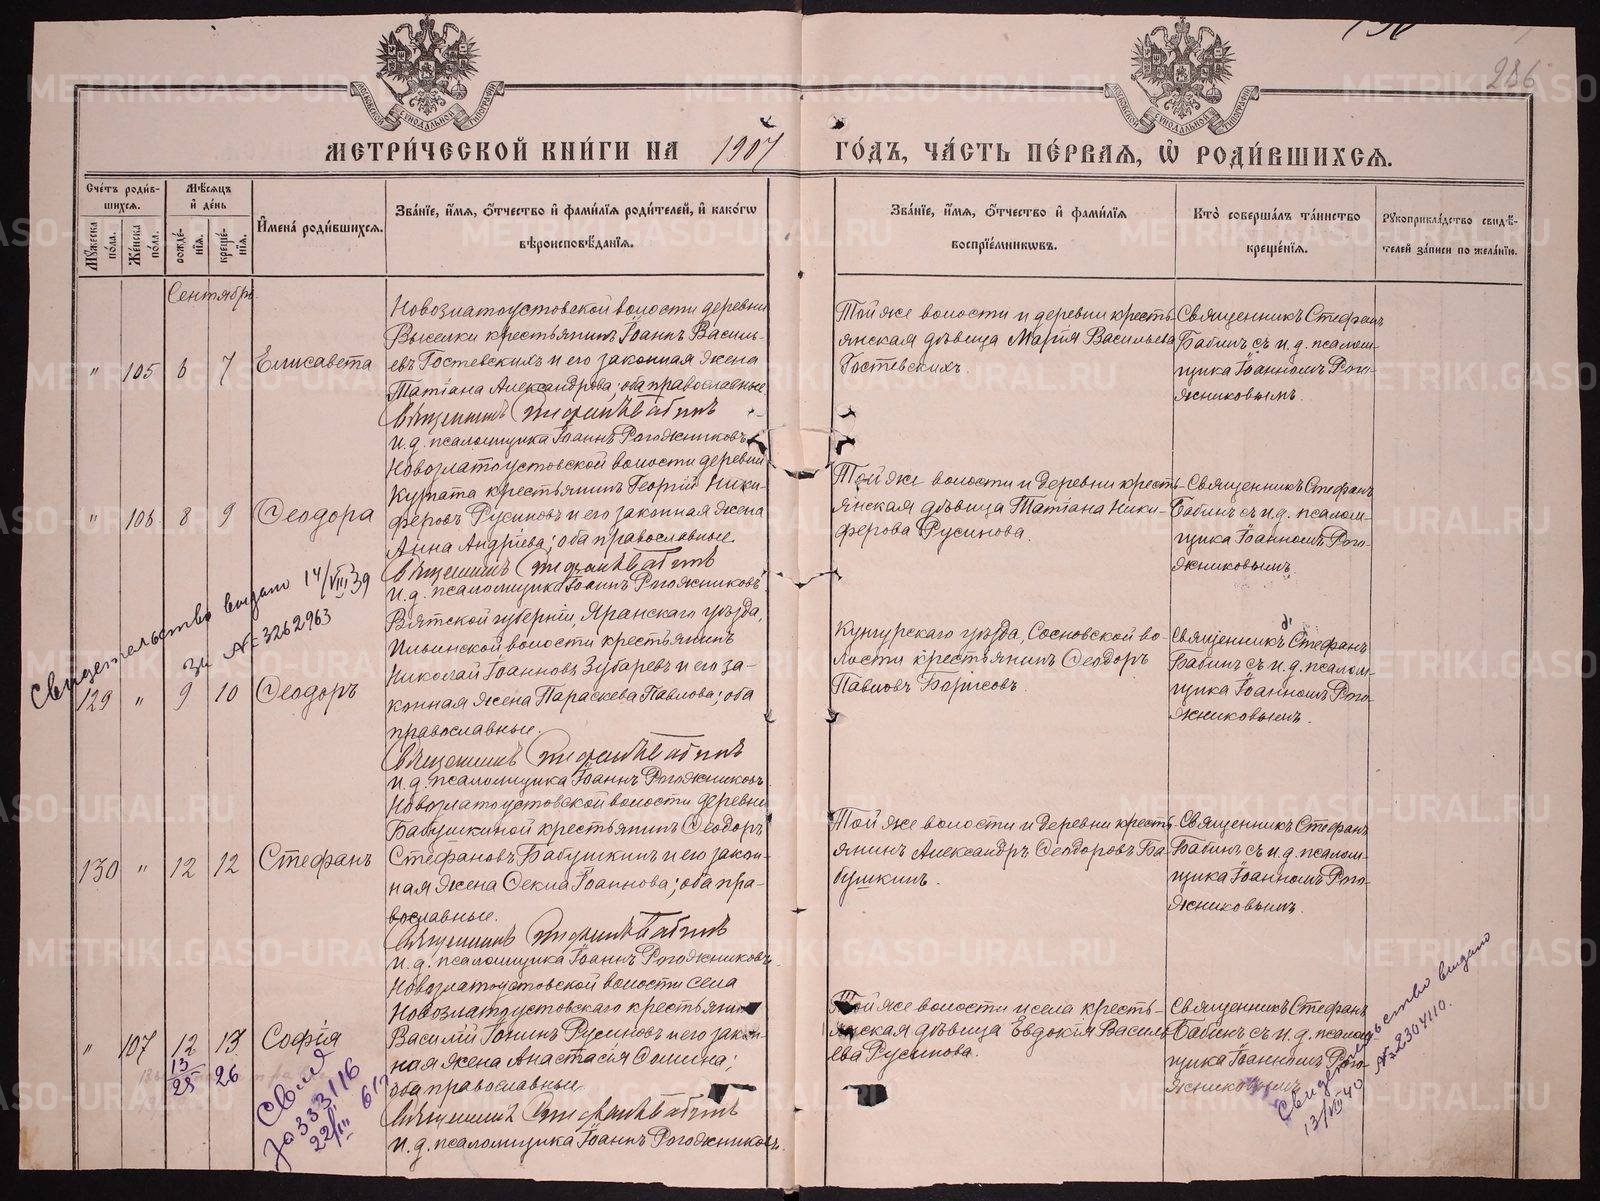 286
МОСКОВСКОЙ СѴНОДАЛЬНОЙ ТИПОГРАФІИ
МОСКОВСКОЙ СѴНОДАЛЬНОЙ ТИПОГРАФІИ
МЕТРИ́ЧЕСКОЙ КНИ́ГИ НА 1907 ГО́ДЪ, ЧА́СТЬ ПЕ́РВАѦ, Ѡ҆ РОДИ́ВШИХСѦ.
Сче́тъ роди́в-
шихсѧ.
Мѣ́сѧцъ
и҆ де́нь
Мꙋ́жеска
по́ла.
Же́нска
по́ла.
рожде́-
нїѧ.
креще́-
нїѧ.
И҆мена̀ роди́вшихсѧ.
Зва́нїе, и҆́мѧ, ѻ҆́тчество и҆ фами́лїѧ роди́телей, и҆ како́гѡ
вѣроисповѣ́данїѧ.
Зва́нїе, и҆́мѧ, ѻ҆́тчество и҆ фами́лїѧ
воспрїе́мникѡвъ.
Кто̀ соверша́лъ та́инство
креще́нїѧ.
Рꙋкоприкла́дство свидѣ́-
телей за́писи по жела́нїю.
Сентябрь.
" 105 6 7 Елисавета
Новозлатоустовской волости деревни
Выселки крестьянинъ Іоаннъ Василь-
евъ Гостевскихъ и его законная жена
Татіана Александрова; оба православные
Священникъ Стефанъ Бабинъ
и.д. псаломщика Іоаннъ Рогожниковъ
Той же волости и деревни кресть-
янская дѣвица Марія Васильева
Гостевскихъ.
Священникъ Стефанъ
Бабинъ съ и.д. псалом-
щика Іоанномъ Рого-
жниковымъ.
" 106 8 9 Ѳеодора
Новозлатоустовской волости деревни
крестьянинъ Георгій Ники-
феровъ Русиновъ и его законная жена
Анна Андріева; оба православные.
Священникъ Стефанъ Бабинъ
и.д. псаломщика Іоаннъ Рогожниковъ
Той же волости и деревни кресть-
янская дѣвица Татіана Ники-
ферова Русинова.
Священникъ Стефанъ
Бабинъ съ и.д. псалом-
щика Іоанномъ Рого-
жниковымъ.
Свидетельство выдано 14/VIII 39
За № 3262963
129 " 9 10 Ѳеодоръ
Вятской губерніи, Яранскаго уѣзда,
Ильинской волости крестьянинъ
Николай Іоанновъ Зубаревъ и его за-
конная жена Параскева Павлова; оба
православные.
Священникъ Стефанъ Бабинъ
и.д. псаломщика Іоаннъ Рогожниковъ
Кунгурскаго уѣзда, Сосновской во-
лости крестьянинъ Ѳеодоръ
Павловъ Борисовъ.
Священникъ Стефанъ
Бабинъ съ и.д. псалом-
щика Іоанномъ Рого-
жниковымъ.
130 " 12 12 Стефанъ
Новозлатоустовской волости деревни
Бабушкиной крестьянинъ Ѳеодоръ
Стефановъ Бабушкинъ и его закон-
ная жена Ѳекла Іоаннова; оба пра-
вославные.
Священникъ Стефанъ Бабинъ
и.д. псаломщика Іоаннъ Рогожниковъ
Той же волости и деревни кресть-
янинъ Александръ Ѳеодоровъ Ба-
бушкинъ.
Священникъ Стефанъ
Бабинъ съ и.д. псалом-
щика Іоанномъ Рого-
жниковымъ.
" 107 12 13 Софія
13
25 26
Новозлатоустовской волости села
Новозлатоустовскаго крестьянинъ
Василій Іонинъ Русиновъ и его закон-
ная жена Анастасія Ѳомина;
оба православные
Священникъ Стефанъ Бабинъ
и.д. псаломщика Іоаннъ Рогожниковъ.
Той же волости и села кресть-
янская дѣвица Евдокія Василь-
ева Русинова.
Священникъ Стефанъ
Бабинъ съ и.д. псалом-
щика Іоанномъ Рого-
жниковымъ
за 333116
22/III
Свидетельство выдано
13/VIII 40 № 2304110.
METRIKI.GASO-URAL.RU